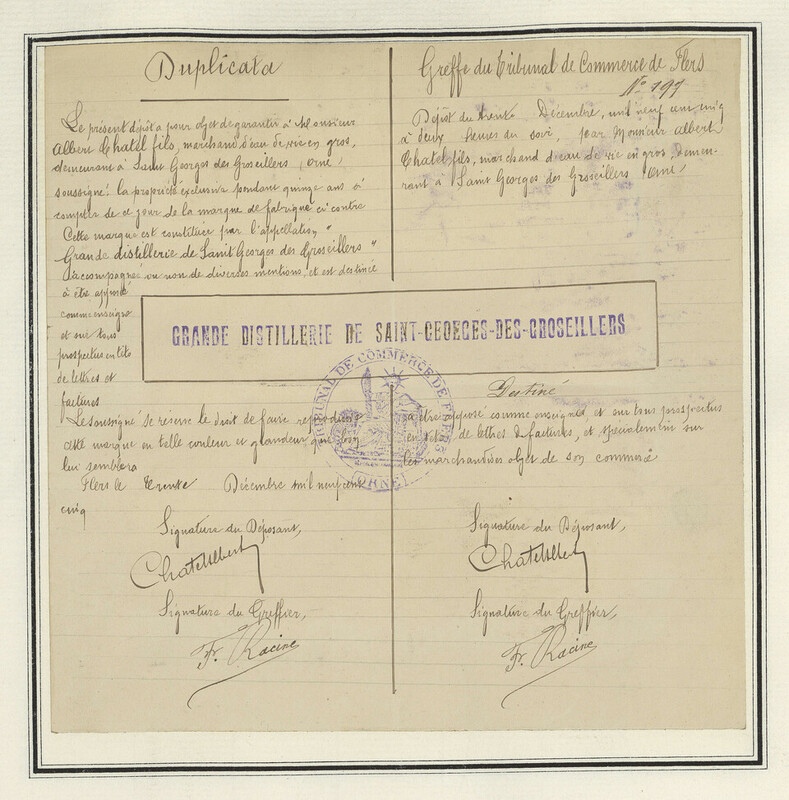 Duplicata
Le présent dépôt a pour objet de garantir à Monsieur
Albert Chatel fils, marchand d'eau de vie en gros,
demeurant à Saint Georges des Groseillers (Orne)
soussigné la propriété exclusive pendant quinze ans à
compter de ce jour de la marque de fabrique ci contre
Cette marque est constituée par l'appellation "
Grande distillerie de Saint Georges des Groseillers "
accompagnée ou non de diverses mentions, et est destinée
à être apposé
comme enseigne
et sur tous
prospectus en tête
de lettres et
factures
Le soussigné se réserve le droit de faire reproduire
cette marque en telle couleur et grandeur que bon
lui semblera
Flers le trente Décembre mil neuf cent
cinq
Signature du Déposant,
Chatel Albert
Signature du Greffier,
Fr. Racine
Greffe du Tribunal de Commerce de Flers
No 197
Dépôt du trente Décembre, mil neuf cent cinq
à deux heures du soir, par Monsieur Albert
Chatel fils, marchand d'eau de vie en gros, demeu-
rant à Saint Georges des Groseillers (Orne)
GRANDE DISTILLERIE DE SAINT-GEORGES-DES-GROSEILLERS
TRIBUNAL DE COMMERCE DE FLERS
(ORNE)
Destiné
à être apposé comme enseigne, et sur tous prospectus
en tête de lettres & factures, et spécialement sur
les marchandises objet de son commerce
Signature du Déposant,
Chatel Albert
Signature du Greffier,
Fr. Racine